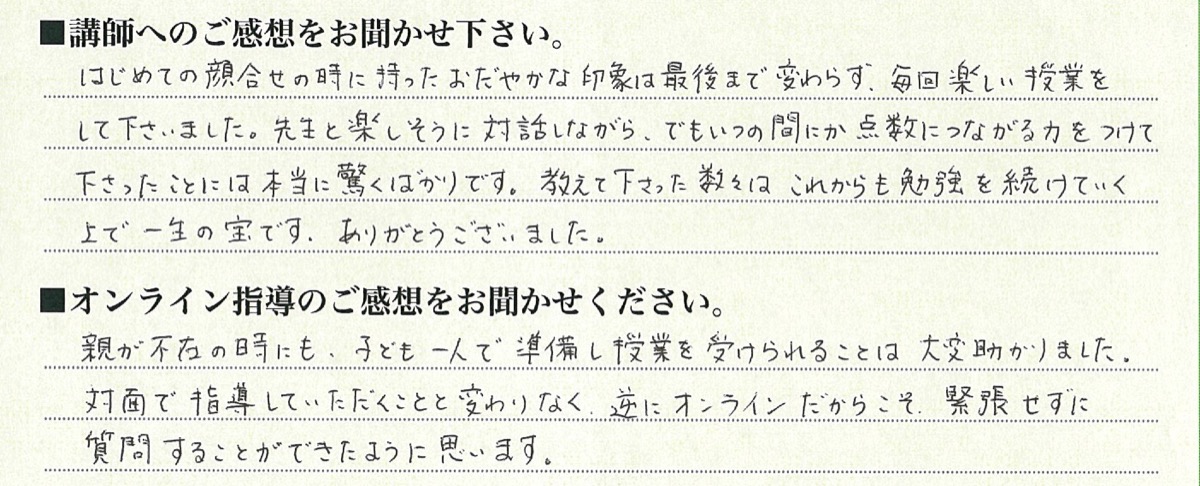 ■講師へのご感想をお聞かせ下さい。
はじめての顔合せの時に持ったおだやかな印象は最後まで変わらず、毎回楽しい授業を
して下さいました。先生と楽しそうに対話しながら、でもいつの間にか点数につながる力をつけて
下さったことには本当に驚くばかりです。教えて下さった数々はこれからも勉強を続けていく
上で一生の宝です。ありがとうございました。
■オンライン指導のご感想をお聞かせください。
親が不在の時にも、子ども一人で準備し授業を受けられることは大変助かりました。
対面で指導していただくことと変わりなく、逆にオンラインだからこそ、緊張せずに
質問することができたように思います。